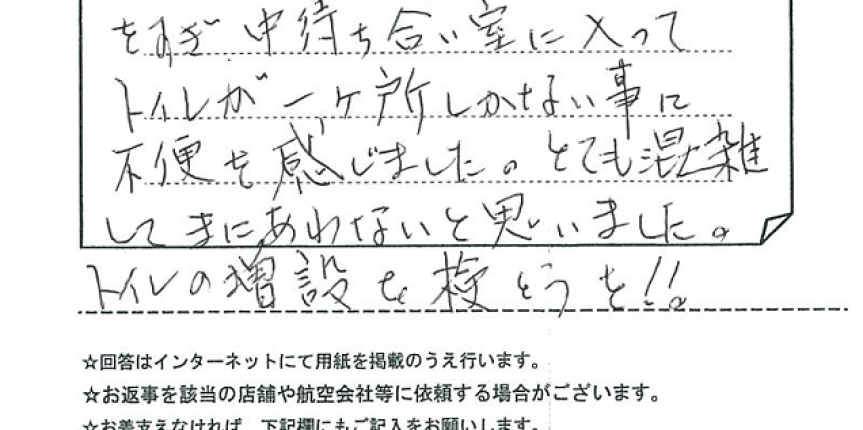 をすぎ中待ち合い室に入って
トイレが一ヶ所しかない事に
不便を感じました。とても混雑
してまにあわないと思いました。
トイレの増設を検とうを!!
☆回答はインターネットにて用紙を掲載のうえ行います。
☆お返事を該当の店舗や航空会社等に依頼する場合がございます。
☆お差支えなければ、下記欄にもご記入をお願いします。